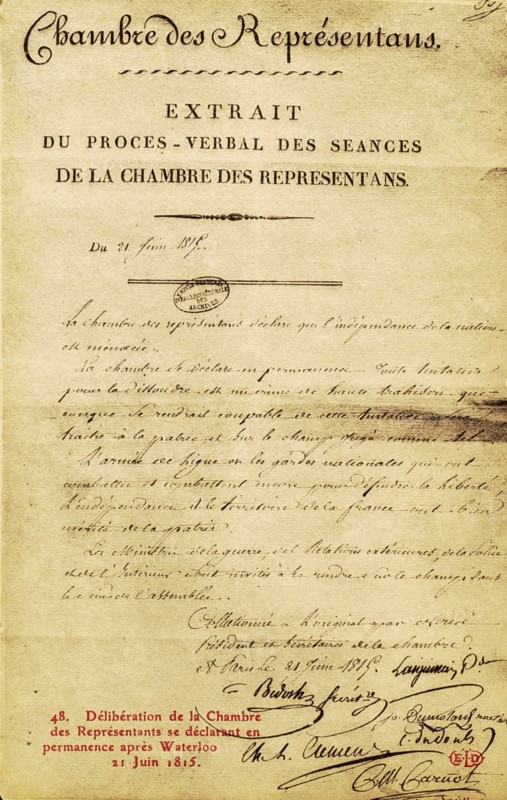 Chambre des Représentans.
EXTRAIT
DU PROCES-VERBAL DES SEANCES
DE LA CHAMBRE DES REPRESENTANS.
Du 21 Juin 1815.
ARCHIVES
La chambre des représentans déclare que l'indépendance de la nation
est menacée.
La chambre se déclare en permanence. Toute tentative
pour la dissoudre est un crime de haute trahison, qui-
conque se rendrait coupable de cette tentative sera
traitre à la patrie, et sur le champ jugé comme tel.
L'armée de ligne et les gardes nationales qui ont
combattu et combattent encore pour défendre la liberté,
l'indépendance et le territoire de la france ont bien
mérité de la patrie.
Les Ministres de la guerre, des Relations extérieures, de la Police
et de l'Intérieur sont invités à se rendre sur le champ dans
le sein de l'assemblée.
Collationné à l'original par
Président et Secrétaires de la chambre
à Paris le 21 Juin 1815. Lanjuinais
Bedoch
Clement
Carnot
48. Délibération de la Chambre
des Représentants se déclarant en
permanence après Waterloo
21 Juin 1815.